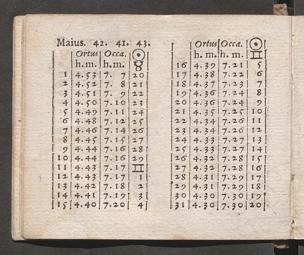 Maius. 42. 41. 43.
Ortus Occa. ☉
h. m. h. m. ♉
1 4.53 7. 7 20
2 4.52 7. 8 21
3 4.51 7. 9 22
4 4.50 7.10 23
5 4.49 7.11 24
6 4.48 7.12 25
7 4.46 7.14 26
8 4.45 7.15 27
9 4.44 7.16 28
10 4.44 7.16 29
11 4.43 7.17 ♊
12 4.43 7.17 1
13 4.42 7.18 2
14 4.41 7.19 3
15 4.40 7.20 4
Ortus Occa. ☉
h. m. h. m. ♊
16 4.39 7.21 5
17 4.38 7.22 6
18 4.37 7.23 7
19 4.37 7.23 8
20 4.36 7.24 9
21 4.35 7.25 10
22 4.34 7.26 11
23 4.34 7.26 12
24 4.33 7.27 13
25 4.33 7.27 14
26 4.32 7.28 15
27 4.32 7.28 16
28 4.31 7.29 17
29 4.31 7.29 18
30 4.30 7.30 19
31 4.30 7.30 20